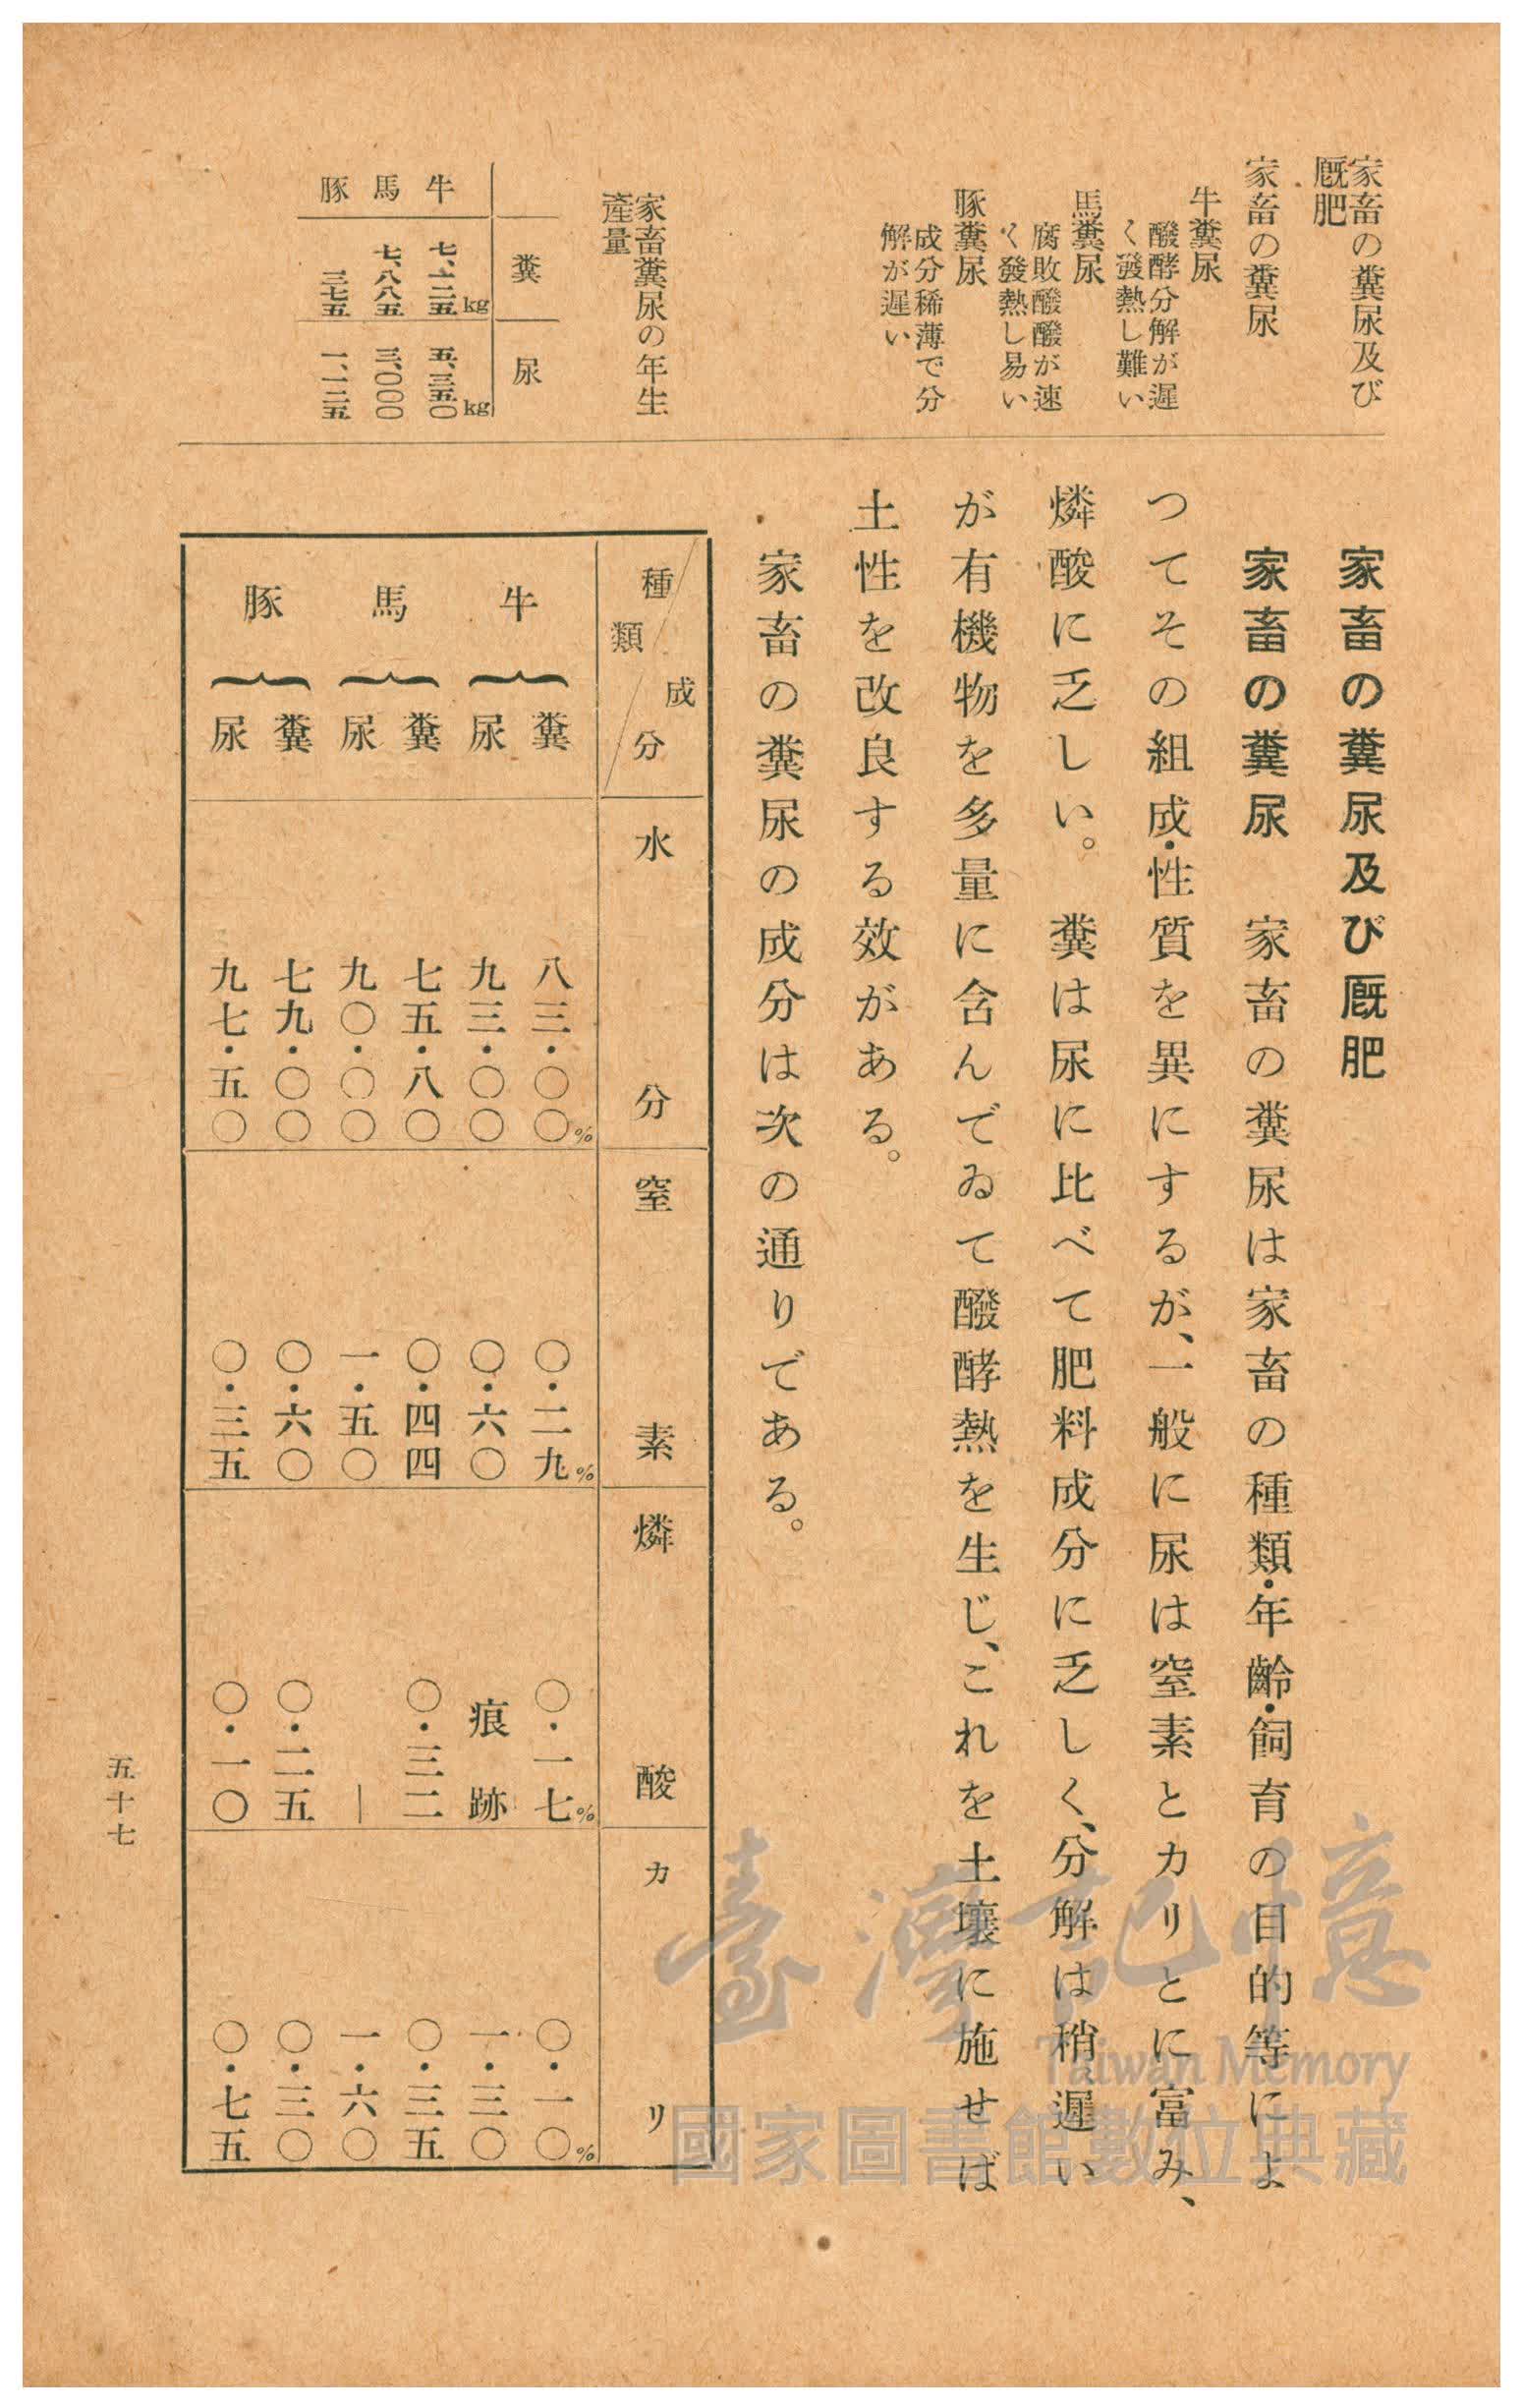 家畜の糞尿及び
厩肥
家畜の糞尿
牛糞尿
醱酵分解が遲
く發熱し難い
馬糞尿
腐敗醱醱が速
く發熱し易い
豚糞尿
成分稀薄で分
解が遲い
家畜糞尿の年生
產量
糞 尿
牛 七、一二五kg 五、三五〇kg
馬 七、八八五 三、〇〇〇
豚 三七五 一、一二五
家畜の糞尿及び厩肥
家畜の糞尿 家畜の糞尿は家畜の種類・年齡・飼育の目的等によ
つてその組成・性質を異にするが、一般に尿は窒素とカリとに富み、
燐酸に乏しい。 糞は尿に比べて肥料成分に乏しく、分解は稍遲い
が有機物を多量に含んでゐて醱酵熱を生じ、これを土壤に施せば
土性を改良する效がある。
家畜の糞尿の成分は次の通りである。
種類 成分 水分 窒素 燐酸 カリ
牛 糞 八三・〇〇% 〇・二九% 〇・一七% 〇・一〇%
尿 九三・〇〇 〇・六〇 痕跡 一・三〇
馬 糞 七五・八〇 〇・四四 〇・三二 〇・三五
尿 九〇・〇〇 一・五〇 — 一・六〇
豚 糞 七九・〇〇 〇・六〇 〇・二五 〇・三〇
尿 九七・五〇 〇・三五 〇・一〇 〇・七五
五十七
臺灣記憶
Taiwan Memory
國家圖書館數位典藏